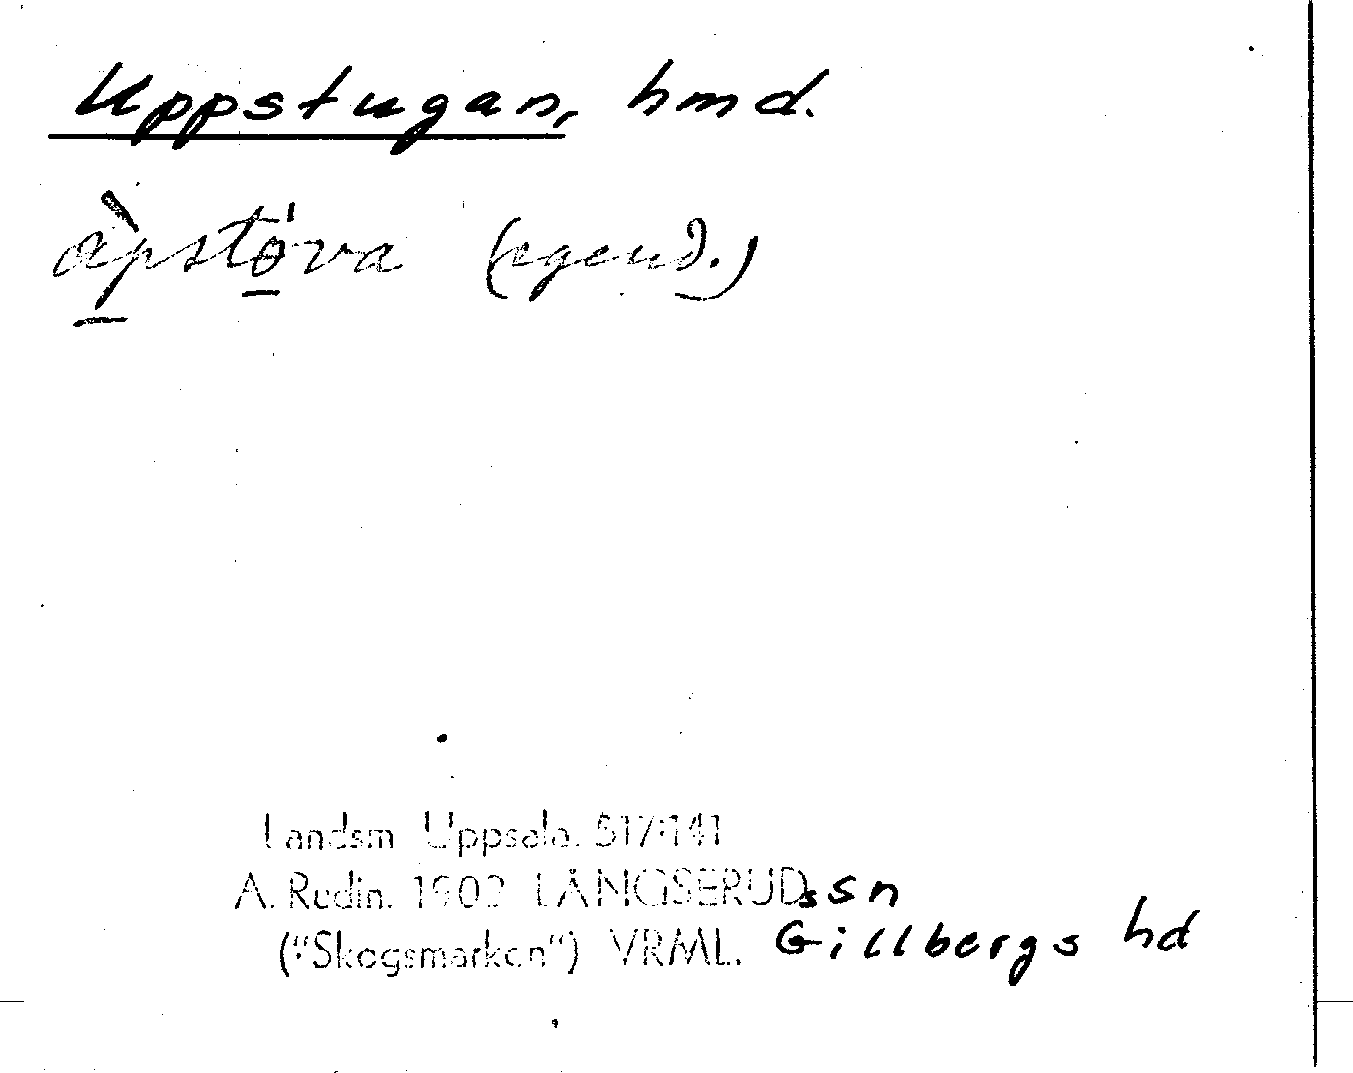 Uppstugan, hmd.
åpstöva (egend.)
Landsm. Uppsala. 517:141
A. Redin. 1902 LÅNGSERUDs sn
("Skogsmarken") VRML. Gillbergs hd